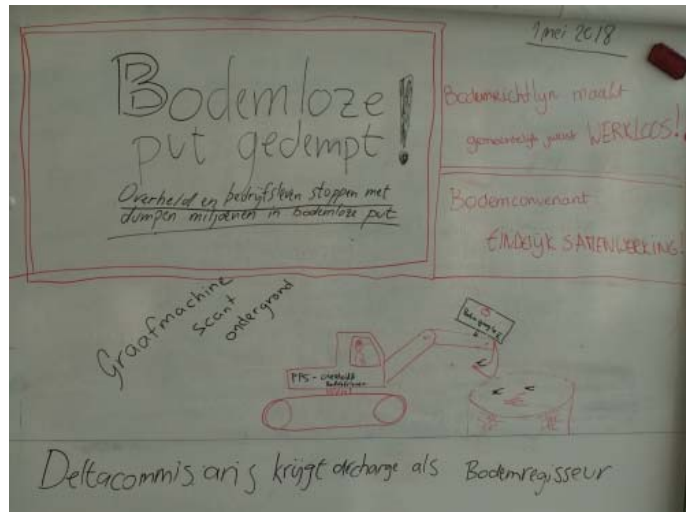 1 mei 2018
Bodemloze
put gedempt!
Overheid en bedrijfsleven stoppen met
dumpen miljoenen in bodemloze put
Bodemrichtlijn maakt
WERKLOOS!
Bodemconvenant
EINDELIJK SAMENWERKING!
Graafmachine
scant
ondergrond
PPS - overheid
Deltacommisaris krijgt decharge als Bodemregisseur